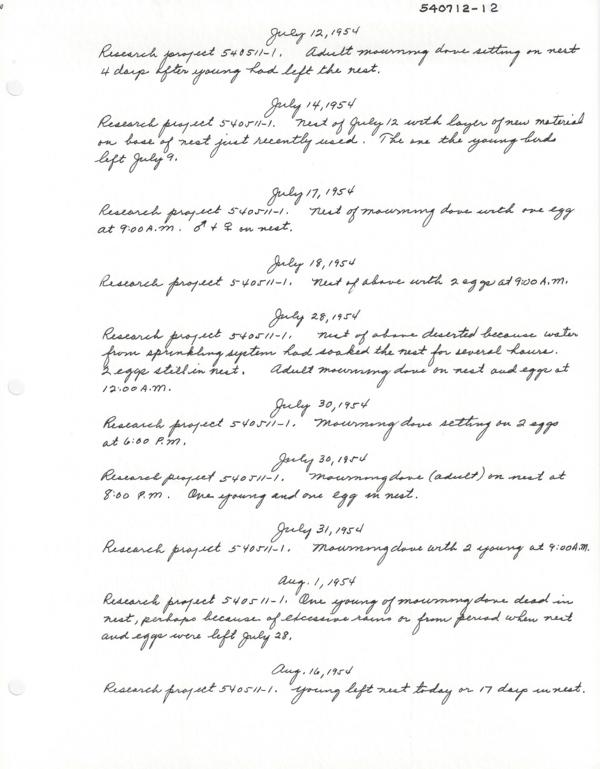 540712-12
July 12, 1954
Research project 540511-1. Adult mourning dove setting on nest
4 days after young had left the nest.
July 14, 1954
Research project 540511-1. Nest of July 12 with layer of new material
on base of nest just recently used. The one the young birds
left July 9.
July 17, 1954
Research project 540511-1. Nest of mourning dove with one egg
at 9:00 A.M. ♂ + ♀ on nest.
July 18, 1954
Research project 540511-1. Nest of above with 2 eggs at 9:00 A.M.
July 28, 1954
Research project 540511-1. Nest of above deserted because water
from sprinkling system had soaked the nest for several hours.
2 eggs still in nest. Adult mourning dove on nest and eggs at
12:00 A.M.
July 30, 1954
Research project 540511-1. Mourning dove setting on 2 eggs
at 6:00 P.M.
July 30, 1954
Research project 540511-1. Mourning dove (adult) on nest at
8:00 P.M. One young and one egg in nest.
July 31, 1954
Research project 540511-1. Mourning dove with 2 young at 9:00 A.M.
Aug. 1, 1954
Research project 540511-1. One young of mourning dove dead in
nest, perhaps because of excessive rains or from period when nest
and eggs were left July 28.
Aug. 16, 1954
Research project 540511-1. Young left nest today or 17 days in nest.